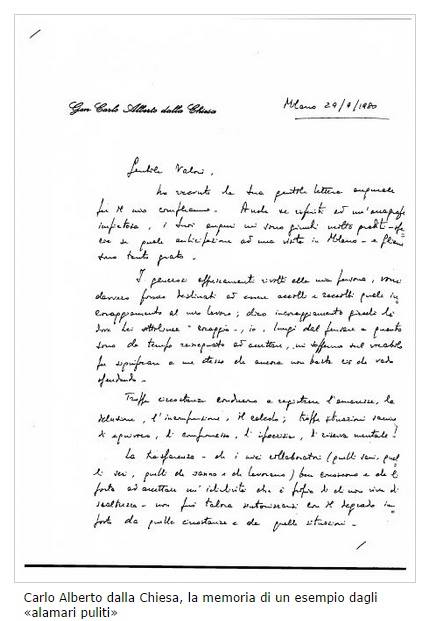 Gen. Carlo Alberto dalla Chiesa
Milano 29/9/1980
Gentile Valori,
ho ricevuto la Sua gentile lettera augurale
per il mio compleanno. Anche se riferiti ad un'anagrafe
impietosa, i Suoi auguri mi sono giunti molto graditi - spe
cie se quale anticipazione ad una visita in Milano - e gliene
sono tanto grato.
I generosi apprezzamenti rivolti alla mia persona, sono
davvero forse destinati ad essere accolti e raccolti quale in
coraggiamento al mio lavoro; dico incoraggiamento perché là
dove Lei sottolinea "coraggio", io, lungi dal pensare a quanto
sono da tempo rassegnato ad accettare, mi soffermo sul vocabolo
per significare a me stesso che ancora non basta ciò che vado
offrendo.
Troppe circostanze conducono a registrare l'amarezza, la
delusione, l'incomprensione, il calcolo; troppe situazioni sanno
di equivoco, di compromesso, di ipocrisia, di riserva mentale!
La trasparenza - che i miei collaboratori (quelli sani, quel
li seri, quelli che sanno e che lavorano) ben conoscono e che è
ad accettare che è propria di chi non vive di
- non può talora con il degrado
da quelle circostanze e da quelle situazioni. -
Carlo Alberto dalla Chiesa, la memoria di un esempio dagli
«alamari puliti»